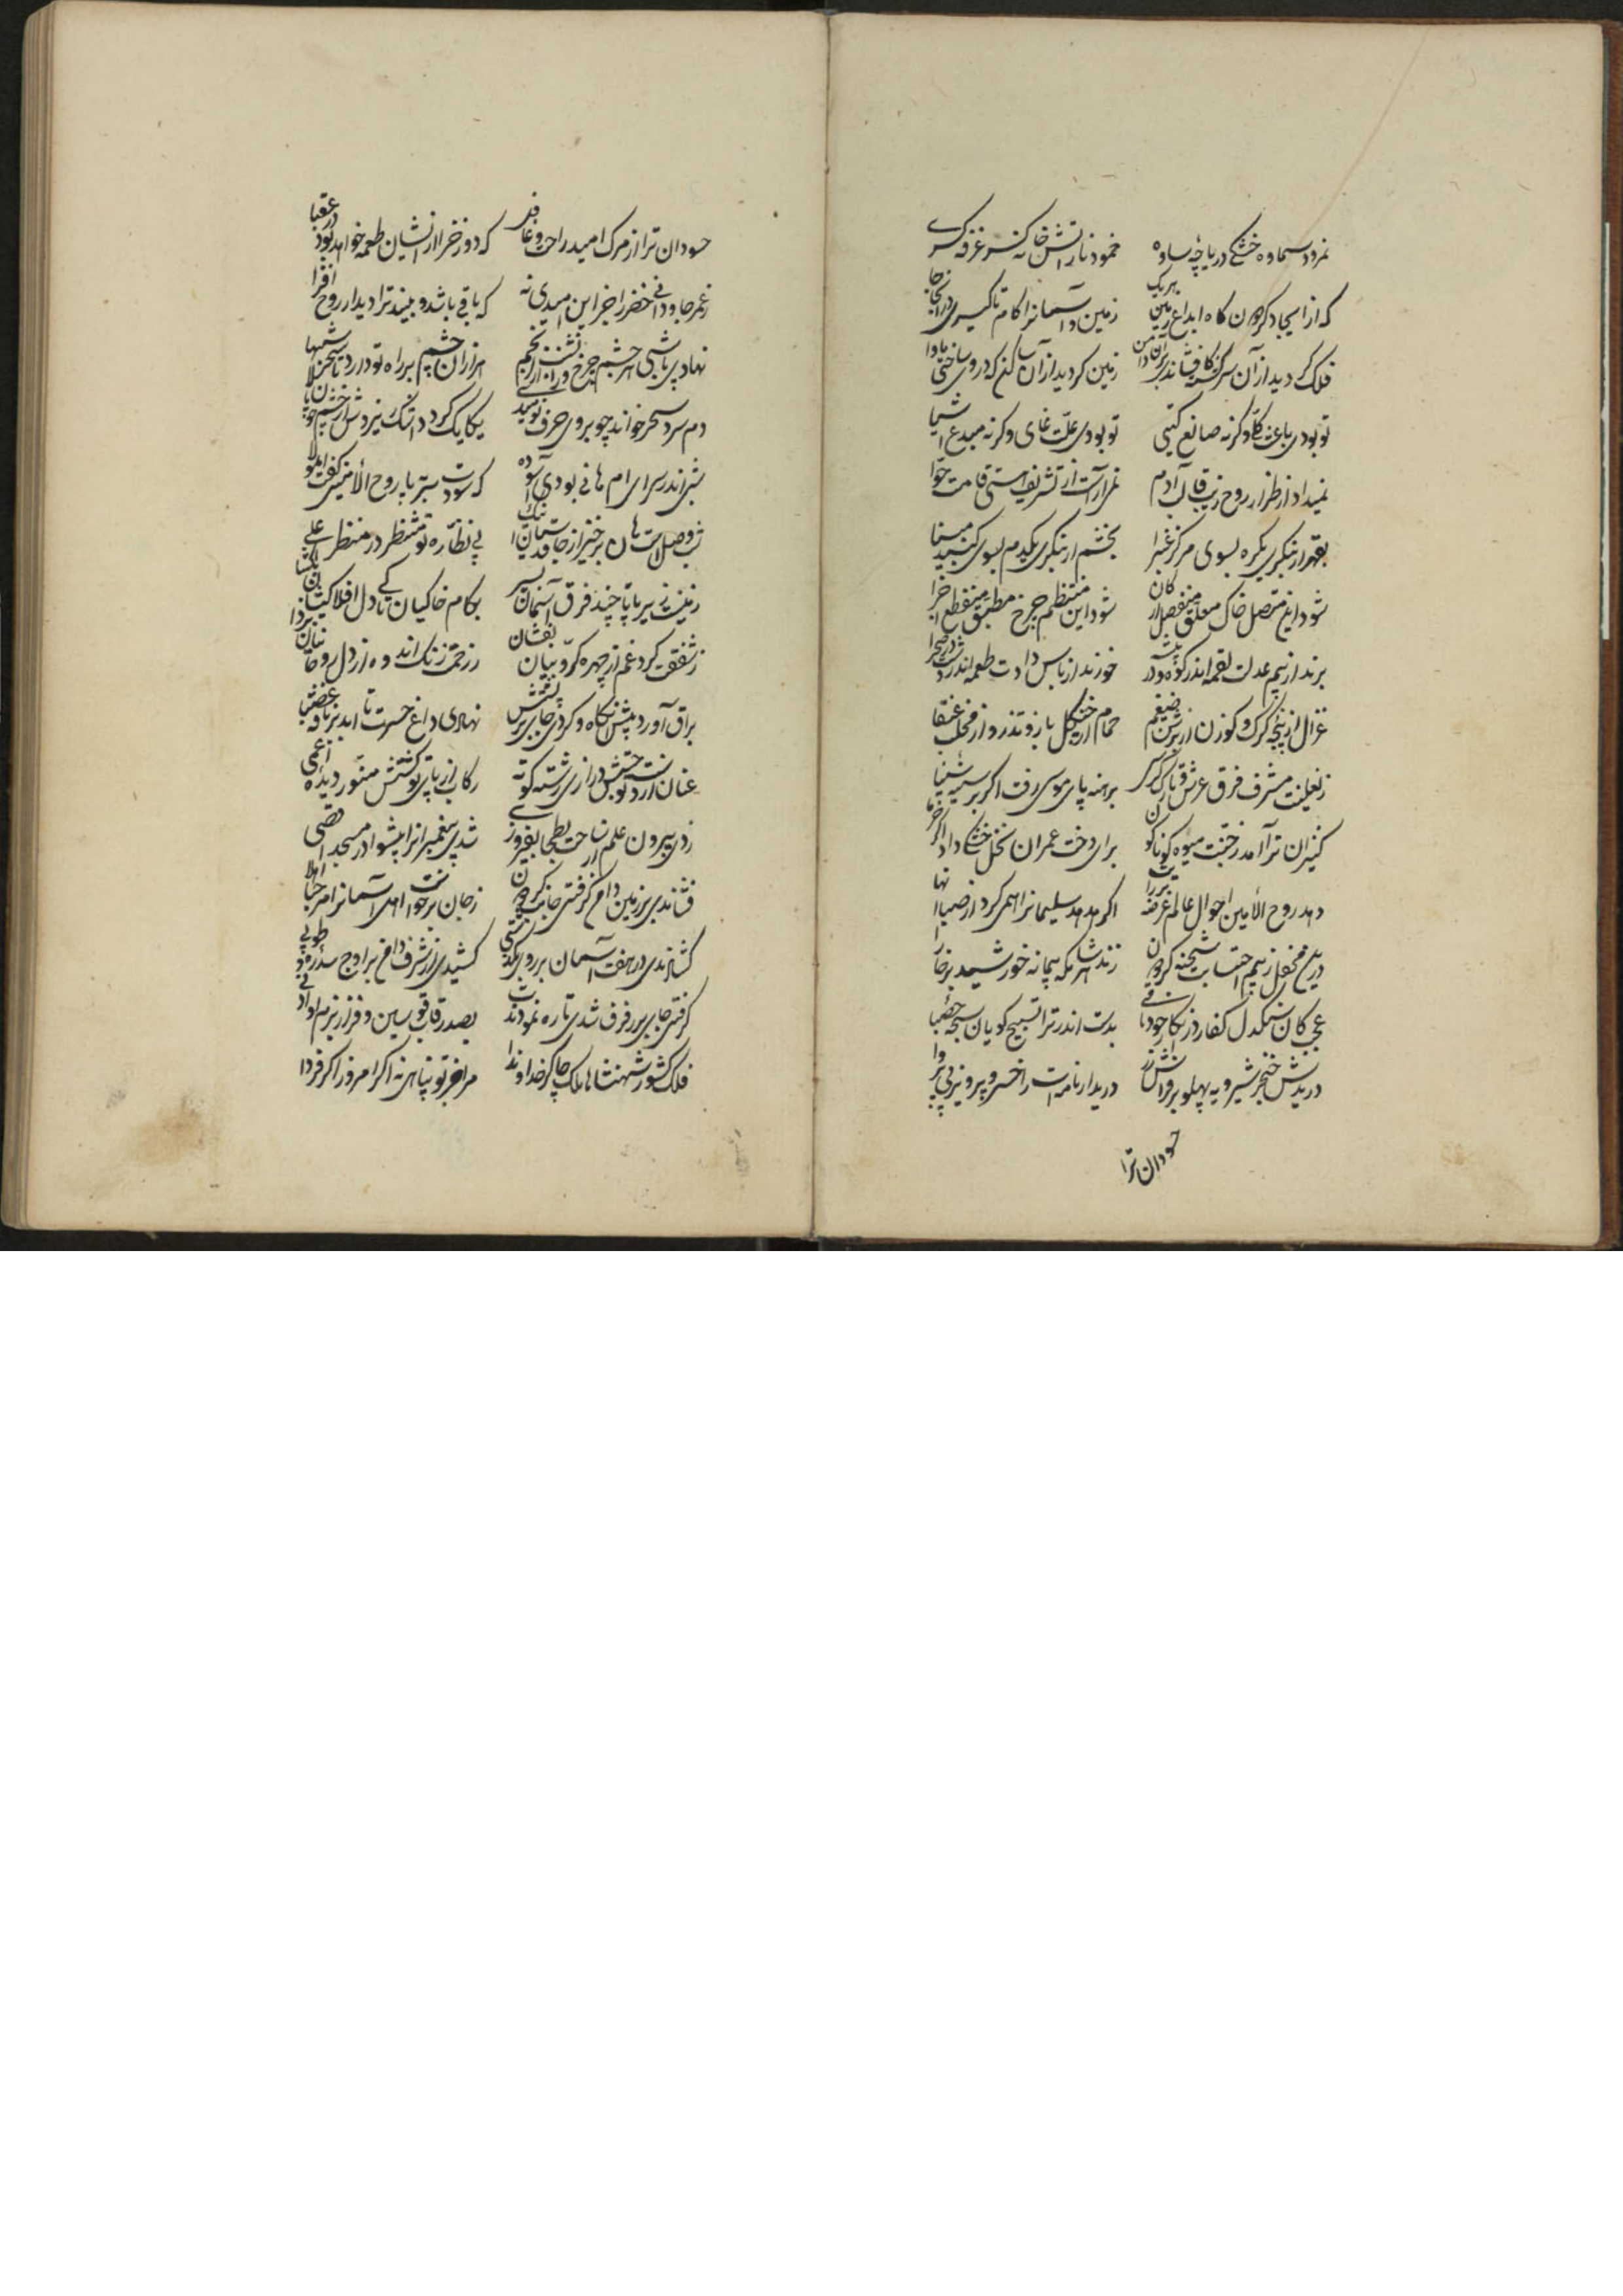 نمرود سماوه خشکی دریاچه ساوه خمود نار آتش خانه کسر غرفه کسری
که از ایجاد گردون گاه ابداع زمین زمین و آسمانرا کام تا گیری در آنجا جا
فلک گردید از آن سرگشته کافشاندی بر آن دامن زمین گردید از آن ساکن که در وی ساختی ماوا
تو بودی باعث کلی وگرنه صانع گیتی تو بودی علت غائی وگرنه مبدع اشیا
نمیداد از طراز روح زیب قالب آدم نمی‌آراست از تشریف هستی قامت حوا
بقهر ار بنگری یکره بسوی مرکز غبرا بخشم ار بنگری یکدم بسوی گنبد مینا
شود این متصل خاک معلق منفصل ارکان شود این منتظم چرخ مطبق منقطع اجزا
برند از بیم عدلت لقمه اندر کوه و در خورند از پاس دادت طعمه اندر دشت و در صحرا
غزال از پنجه گرگ و گوزن از برثن ضیغم حمام از چنگل باز و تذرو از مخلب عنقا
ز نعلینت مشرف فرق عرش و تارک کرسی برهنه پای موسی رفت اگر بر سینه سینا
کنیزان ترا آمد ز جنت میوه گوناگون برای دخت عمران نخل خشک داد اگر خرما
دهد روح الأمین احوال عالم عرضه بر رایت اگر هدهد سلیمانرا همی کرد از صبا انها
در بیم احتسابت شحنه گردون زند شاهر مکه پیمانه خورشید بر خارا
عجب کان سنگدل کفار در انکار خود باقی بدست اندر ترا تسبیح گویان سبحه حصبا
دریدش خنجر شیرویه پهلو بر فراش زر درید ار نامه‌ات را خسرو پرویز بی پروا
حسودان ترا
حسودان ترا از مرگ امید راحت و غافل که دوزخرا از ایشان طعمه خواهد بود در عقبا
ز عمر جاودانی خضر را جز این امیدی نه که باقی باشد و بیند ترا دیدار روح افزا
نهاد پاشی هر چشم چرخ و هزاران چشم بر راه تو دارد تا سحر شبها
دم سرد سحر خواند چو بروی حرف نومیدی یکایک گردد اشک نیز
شبی اندر سرای ام هانی بودی آسوده که سودت سر بپا روح الأمین گفت
شب وصلست هان برخیز از جا پی نظاره تو منتظر در منظر اعلی
زمینت زیر پا تا چند فرق آسمان بکام خاکیان تا کی دل افلاکیان
ز شفقت گرد غم از چهره کروبیان بفشان ز رحمت زنگ اندوه از دل روحانیان بزدا
براق آورد پیشت آنگاه و کردی جای بر پشتش نهادی داغ حسرت تا ابد بر ناقه عضبا
عنان از دست تو درازی رشته کوته رکاب از پای تو گشتش منور دیده اعمی
زدی بیرون علم از ساحت بطحا بفیروزی شدی پیغمبرانرا پیشوا در مسجد اقصی
فشاندی بر زمین دامن گرفتی جانب گردون ز جان برخواست اهل آسمانرا مرحبا اهلا
گشادندی در هفت آسمان بر روی کشیدی از شرف دامن بر اوج سدره و طوبی
گرفتی جای بر رفرف شدی تا ره نمودندت بصدر قاب قوسین و فراز بزم او ادنی
فلک کشور شهنشاها ملک چاکر خداوندا مرا جز تو پناهی نه اگر امروز اگر فردا